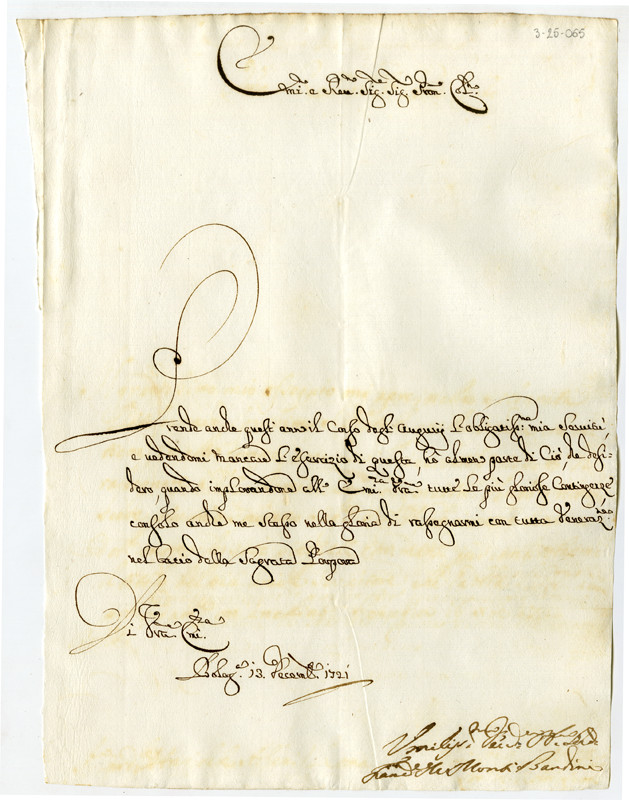 3-26-065
Emi. e Reu. Sig. Sig. Pron. Col.
Prende anche quest' anno il Corso degl' Augurij l'obligatiss.ma mia Servitù,
e vedendomi mancare l'esercizio di questa, hò almen parte di Ciò, che desi-
dero, quando implorandone all' Emi.za Vra. tutte le più gloriose Contingenze
consolo anche me stessa nella gloria di rassegnarmi con tutta Veneraz.ne
nel bacio della Sagrata Porpora
Di Vra. Emi.za
Bolog.a 13. Decemb. 1721
Vmilis.
Monti Bandini